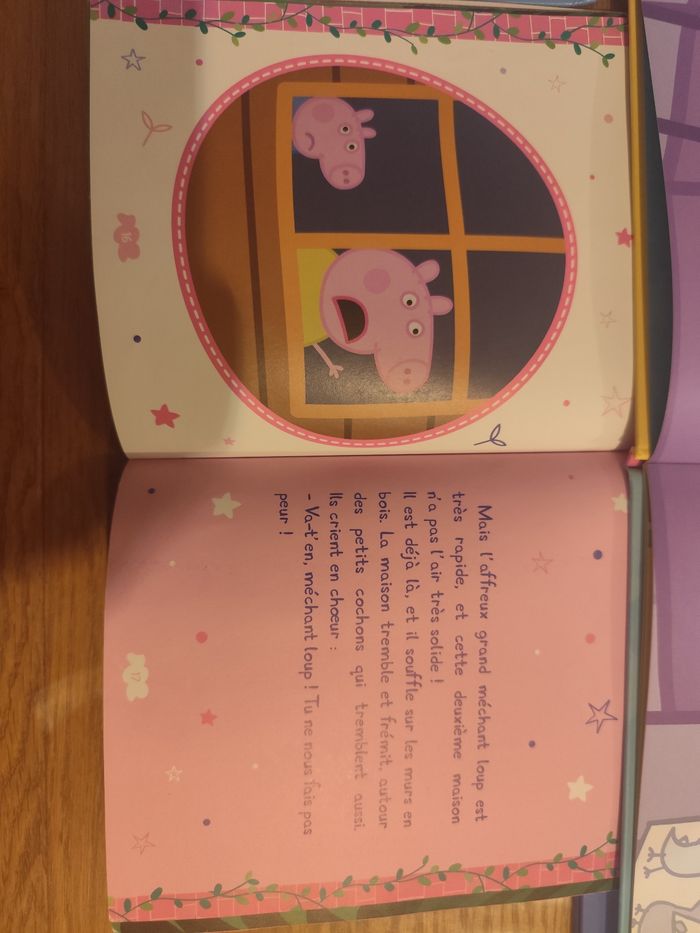 16
Mais l'affreux grand méchant loup est
très rapide, et cette deuxième maison
n'a pas l'air très solide !
Il est déjà là, et il souffle sur les murs en
bois. La maison tremble et frémit, autour
des petits cochons qui tremblent aussi.
Ils crient en chœur :
- Va-t'en, méchant loup ! Tu ne nous fais pas
peur !
17